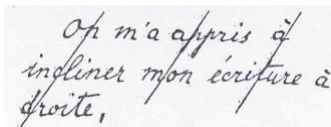 On m'a appris à
incliner mon écriture à
droite.